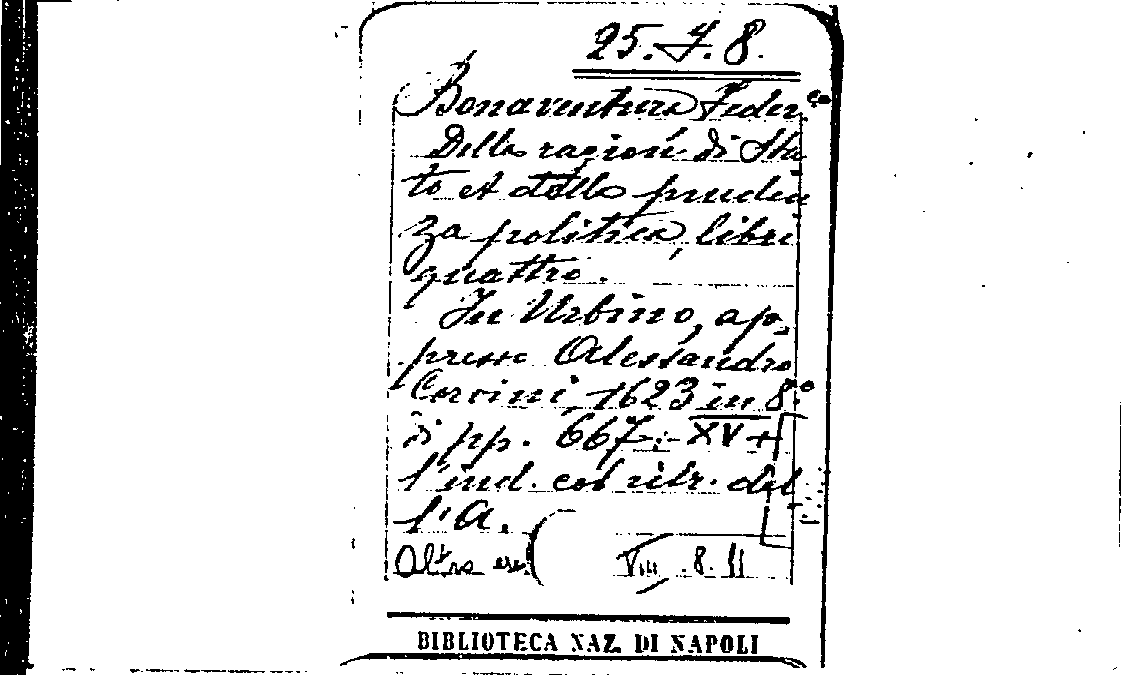 25.4.8.
Bonaventura Feder.co
Della ragion di Sta
to et della pruden
za politica, libri
quattro.
In Urbino, ap-
presso Alessandro
Corvini 1623 in 8.o
di pp. 667 XV +
l'ind. col ritr. del
l'A.
Altro es. VIII .8. 11
BIBLIOTECA NAZ. DI NAPOLI